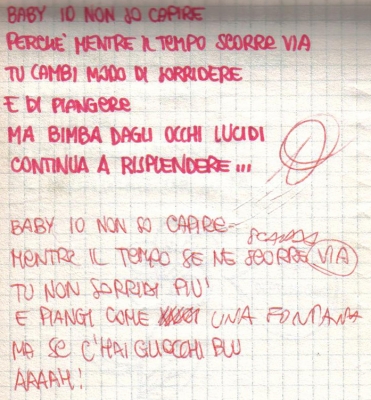 BABY IO NON SO CAPIRE
PERCHE' MENTRE IL TEMPO SCORRE VIA
TU CAMBI MODO DI SORRIDERE
E DI PIANGERE
MA BIMBA DAGLI OCCHI LUCIDI
CONTINUA A RISPLENDERE...
BABY IO NON SO CAPIRE
MENTRE IL TEMPO SE NE SCORRE VIA
TU NON SORRIDI PIU'
E PIANGI COME UNA FONTANA
MA SE C'HAI GLI OCCHI BLU
AAAAH!